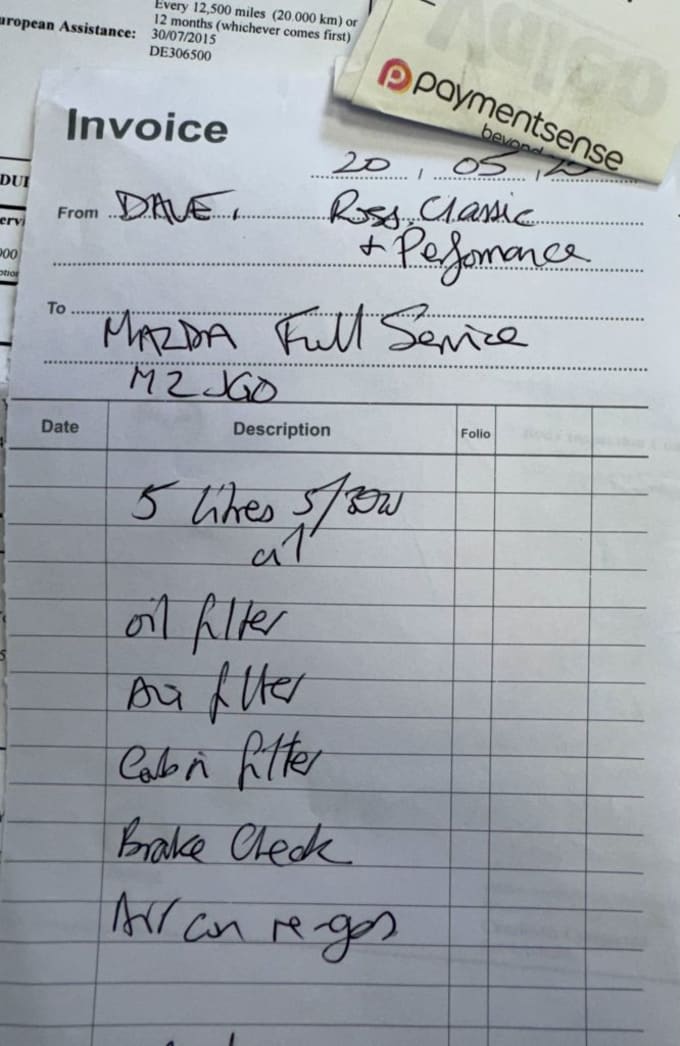 Every 12,500 miles (20.000 km) or
12 months (whichever comes first)
uropean Assistance: 30/07/2015
DE306500
paymentsense
beyond
Invoice
20, 05,
From DAVE, Ross. Classic
+ Pefomance
To
MAZDA Full Service
M2 JGO
Date Description Folio
5 Litres 5/30W
oil filter
Air filter
Cabin filter
Brake Check
Air con re-gas